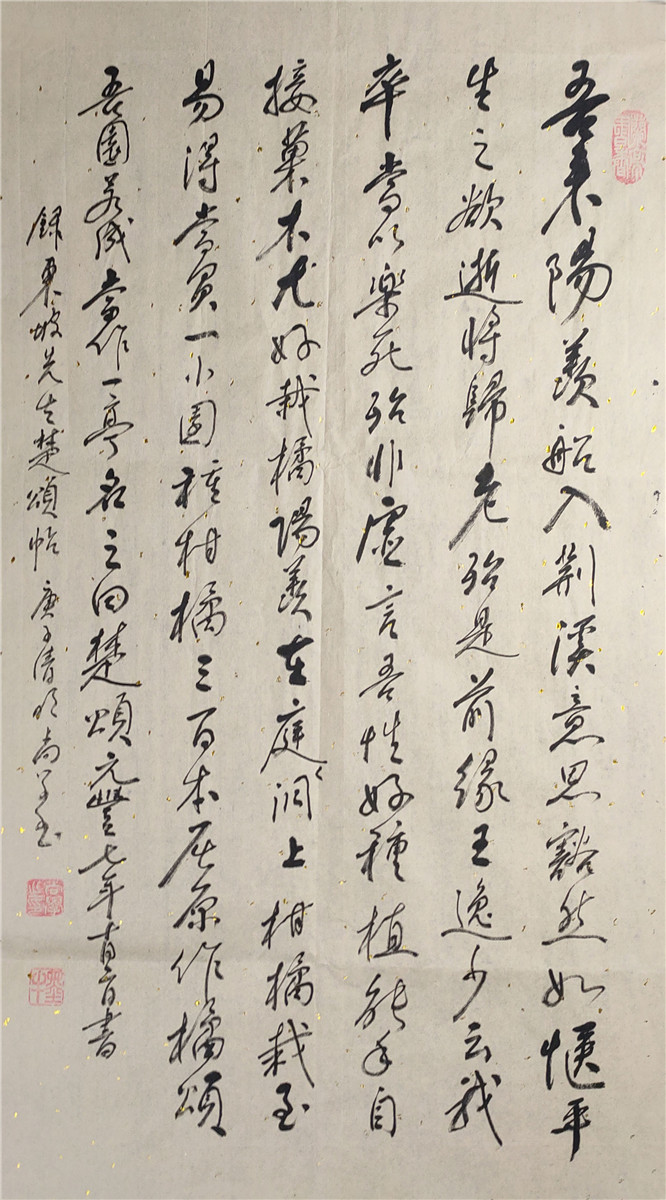 吾来陽羨船入荆溪意思豁然如愜平
生之欲逝將歸老殆是前緣王逸少云我
卒當以楽死殆非虛言吾性好種植能手自
接菓木尤好栽橘陽羨在庭洞上柑橘栽至
易得當買一小園種柑橘三百本屈原作橘頌
吾園若成當作一亭名之曰楚頌元豐七年十月二日書
録東坡先生楚頌帖庚子清明尚学书